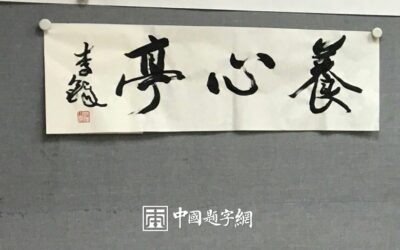 養心亭
中國題字網